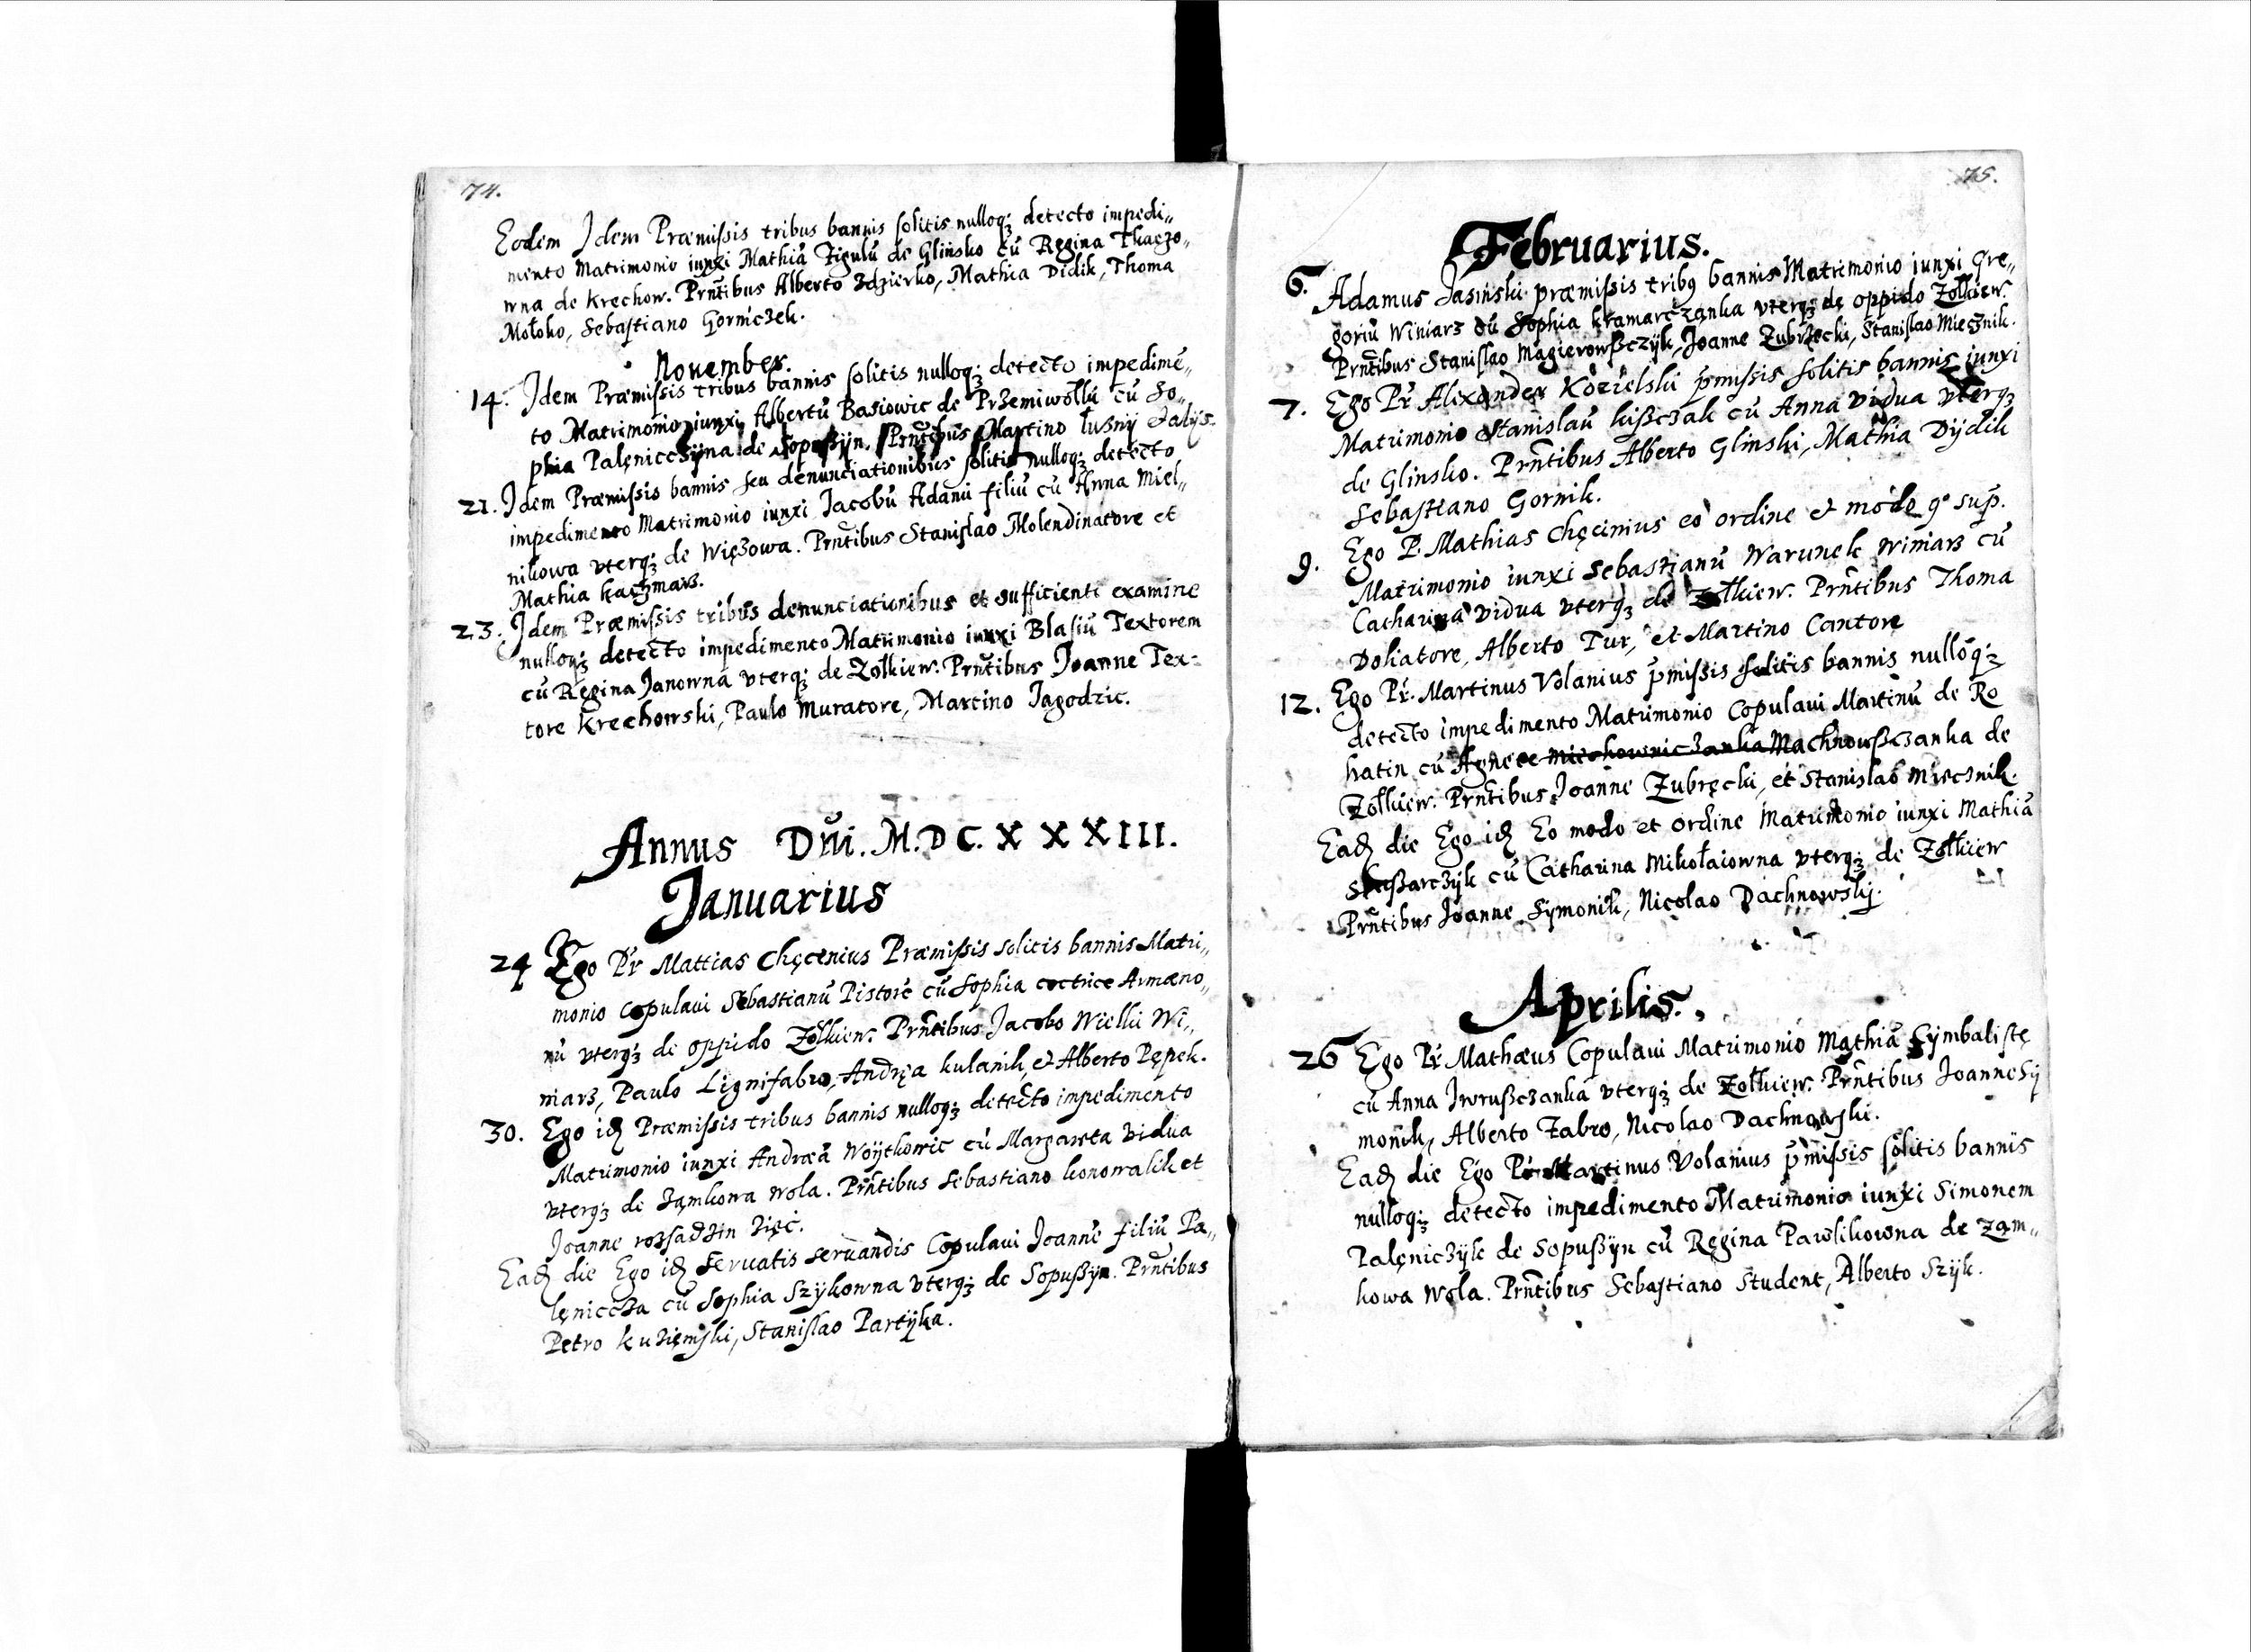 74.
Eodem Idem Præmissis tribus bannis solitis nulloq; detecto impedi„
mento Matrimonio iunxi Mathiā Figulū de Glinsko cū Regina Tkaczo„
wna de Krechow. Prntibus Alberto Zdzierko, Mathia Didik, Thoma
Mołoko, Sebastiano Gorniczek.
November.
14. Idem Præmissis tribus bannis solitis nulloq; detecto impedimē„
to Matrimonio iunxi Albertū Basiowic de Przemiwołki cū So„
phia Palęnicczÿna de Sopaßÿn. Prntibus Martino
21. Idem Præmissis bannis seu denunciationibus solitis nulloq; detecto
impedimento Matrimonio iunxi Iacobū Adami filiū cū Anna Miel„
nikowa vterq; de Więzowa. Prntibus Stanislao Molendinatore et
Mathia kaczmarz.
23. Idem Præmissis tribus denunciationibus et sufficienti examine
nulloq; detecto impedimento Matrimonio iunxi Blasiū Textorem
cū Regina Janowna vterq; de Zołkiew. Prntibus Joanne Tex-
tore Krechowski, Paulo Muratore, Martino Jagodzic.
Annus Dni. M.DC.XXXIII.
Januarius
24 Ego Pr Mattias Chęcenius Præmissis solitis bannis Matri„
monio copulaui Sebastianū Pistorē cū Sophia coctrice Armæno„
rū vterq; de oppido Zołkiew. Prntibus Jacobo Wielki Wi„
niarz, Paulo Lignifabro, Andręa kulanik, et Alberto Pępek.
30. Ego id Præmissis tribus bannis nulloq; detecto impedimento
Matrimonio iunxi Andræā Woÿtkowic cū Margareta vidua
vterq; de Zamkowa wola. Prntibus Sebastiano konowalik et
Joanne rozsadzin zięć.
Ead die Ego id Seruatis seruandis Copulaui Joannē filiū Pa„
lęniccza cū Sophia Szykowna vterq; de Sopußÿn. Prntibus
Petro kuzięmski, Stanislao Partÿka.
75.
Februarius.
6. Adamus Jasinski præmissis tribq bannis Matrimonio iunxi Gre„
goriū Winiarz cū Sophia kramarczanka vterq; de oppido Zołkiew.
Prntibus Stanislao Magierowßczÿk, Joanne Zubrzecki, Stanislao Mięcznik.
7. Ego Pr Alexander Kozielski pmissis solitis bannis iunxi
Matrimonio Stanislaū kißczak cū Anna vidua vterq;
de Glinsko. Prntibus Alberto Glinski, Mathia Dÿdik
Sebastiano Gornik.
9. Ego P. Mathias Chęcinius eo ordine et modo qo sup.
Matrimonio iunxi Sebastianū Warunek winiarz cū
Catharina vidua vterq; de Zołkiew. Prntibus Thoma
Doliatore, Alberto Tur, et Martino Cantore
12. Ego Pr. Martinus Volanius pmissis solitis bannis nulloq;
detecto impedimento Matrimonio Copulaui Martinū de Ro
hatin cū Agnete Miechowniczanka Machnowßczanka de
Zołkiew. Prntibus Joanne Zubręcki, et Stanislao Miecznik.
Ead die Ego id Eo modo et ordine Matrimonio iunxi Mathiā
cū Catharina Mikołaiowna vterq; de Zołkiew
Prntibus Joanne Sÿmonik, Nicolao Dachnowskj.
Aprilis.
26 Ego Pr Mathæus Copulaui Matrimonio Mathiā Cymbalistę
cū Anna Iwrußczanka vterq; de Zołkiew. Prntibus Joanne Sÿ
monik, Alberto Fabro, Nicolao Dachnowski.
Ead die Ego Pr Martinus Volanius pmissis solitis bannis
nulloq; detecto impedimento Matrimonio iunxi Simonem
Palęniczÿk de Sopußÿn cū Regina Pawlikowna de Zam„
kowa Wola. Prntibus Sebastiano Student, Alberto Szÿk.